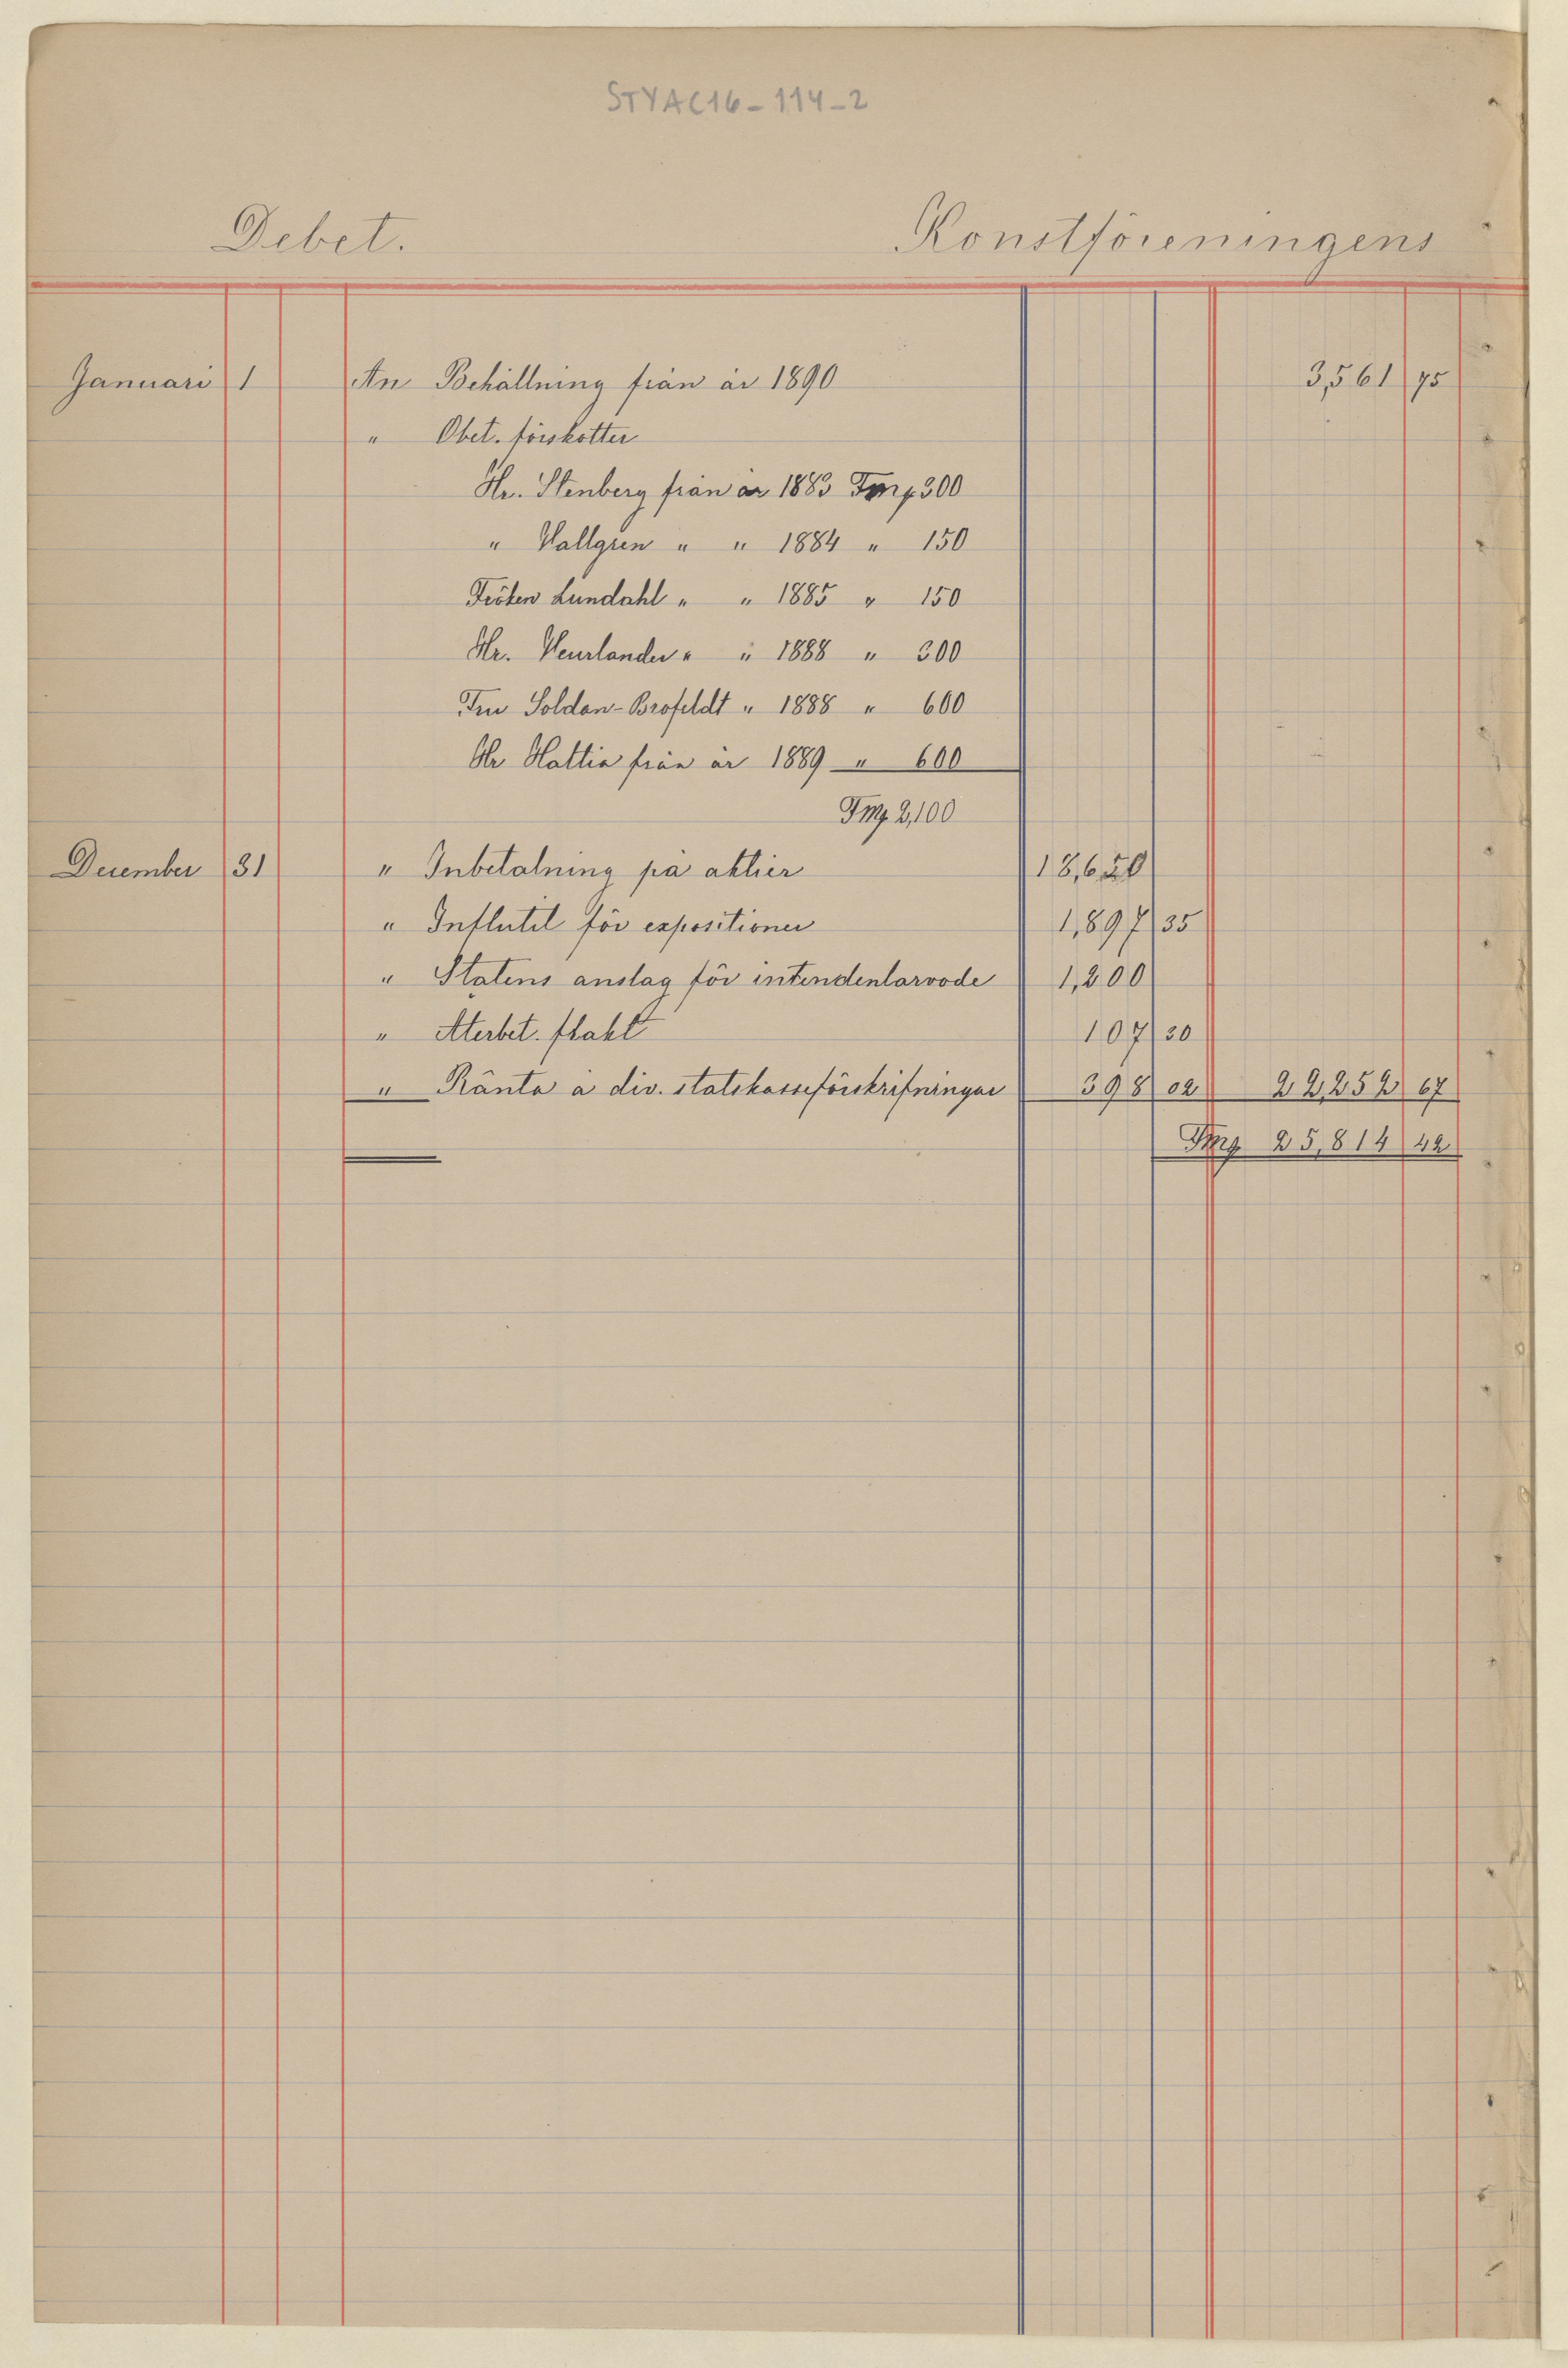 STYAC16-114-2
Debet. Konstföreningens
Januari 1 An Behållning från år 1890 3,561 75
" Obet. förskotter
Hr. Stenberg från år 1883 Fmg 300
" Vallgren " " 1884 " 150
Fröken Lundahl " " 1885 " 150
Hr. Neurlander " " 1888 " 300
Fru Soldan-Brofeldt " 1888 " 600
Hr Hattia från år 1889 " 600
Fmg. 2,100
December 31 " Inbetalning på aktier 18,650
" Influtet för expositioner 1,897 35
" Statens anslag för intendentarvode 1,200
" Återbet. frakt 107 30
" Ränta å div. statskasseförskrifningar 398 02 22,252 67
Fmg 25,814 42